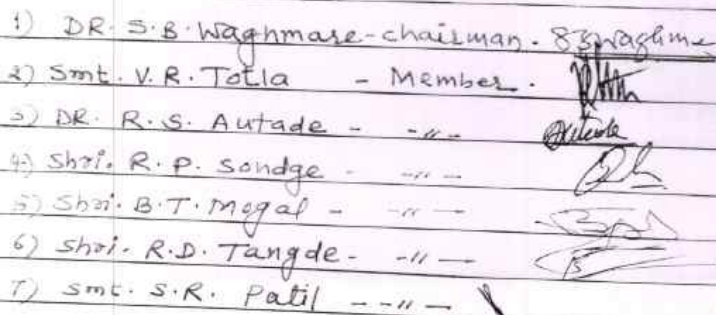 1) DR. S.B. Waghmare - chairman. SBWaghme
2) Smt. V.R. Totla - Member.
3) DR. R.S. Autade - -"- Autade
4) Shri. R.P. Sondge - -"-
5) Shri. B.T. Mogal - -"-
6) Shri. R.D. Tangde - -"-
7) Smt. S.R. Patil - -"-